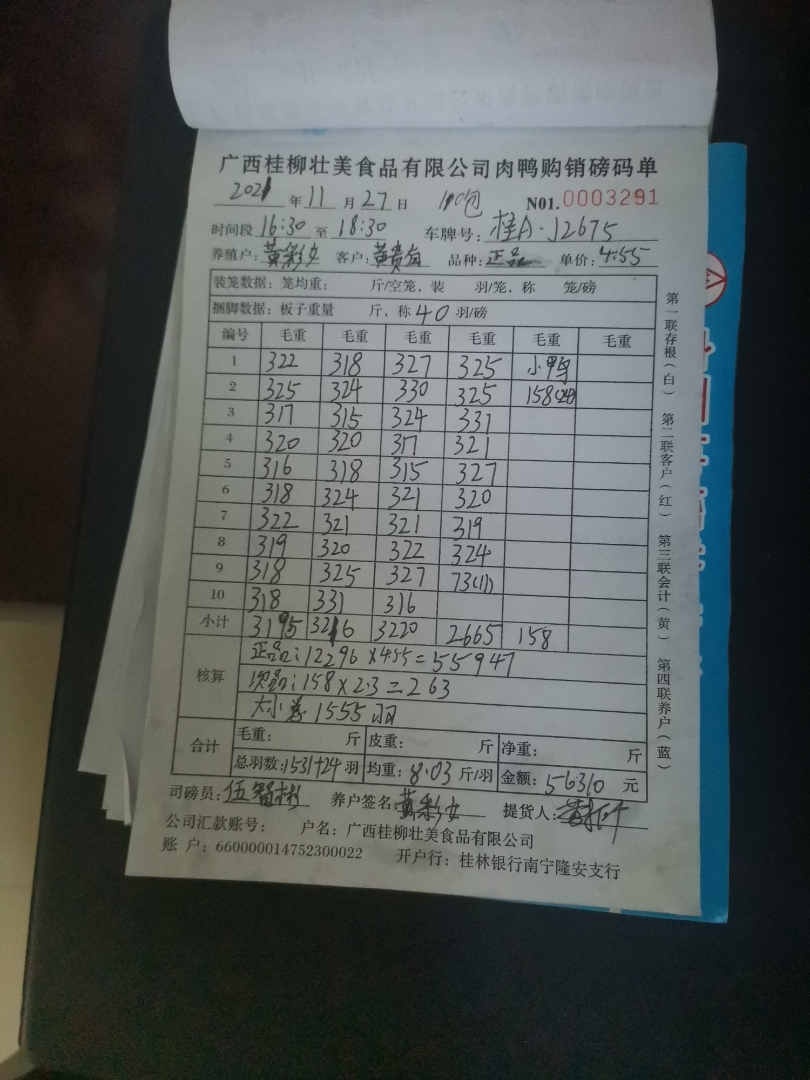 广西桂柳壮美食品有限公司肉鸭购销磅码单
2021 年 11 月 27 日 N01.0003291
时间段 16:30 至 18:30 车牌号: 桂A·J2675
养殖户: 黄彩女 客户: 黄贵 品种: 正品 单价: 4.55
装笼数据: 笼均重: 斤/空笼, 装 羽/笼, 称 笼/磅
捆脚数据: 板子重量 斤, 称 40 羽/磅
编号 毛重 毛重 毛重 毛重 毛重 毛重
1 322 318 327 325 小鸭
2 325 324 330 325 158(24)
3 317 315 324 331
4 320 320 317 321
5 316 318 315 327
6 318 324 321 320
7 322 321 321 319
8 319 320 322 324
9 318 325 327 73(11)
10 318 331 316
小计 3195 3216 3220 2665 158
核算
正品: 12296×4.55=55947
次品: 158×2.3=263
大小总 1555羽
合计
毛重: 斤 皮重: 斤 净重: 斤
总羽数: 1531+24 羽 均重: 8.03 斤/羽 金额: 56310 元
司磅员: 伍智彬 养户签名: 黄彩女 提货人:
公司汇款账号: 户名: 广西桂柳壮美食品有限公司
账 户: 660000014752300022 开户行: 桂林银行南宁隆安支行
第一联存根(白) 第二联客户(红) 第三联会计(黄) 第四联养户(蓝)